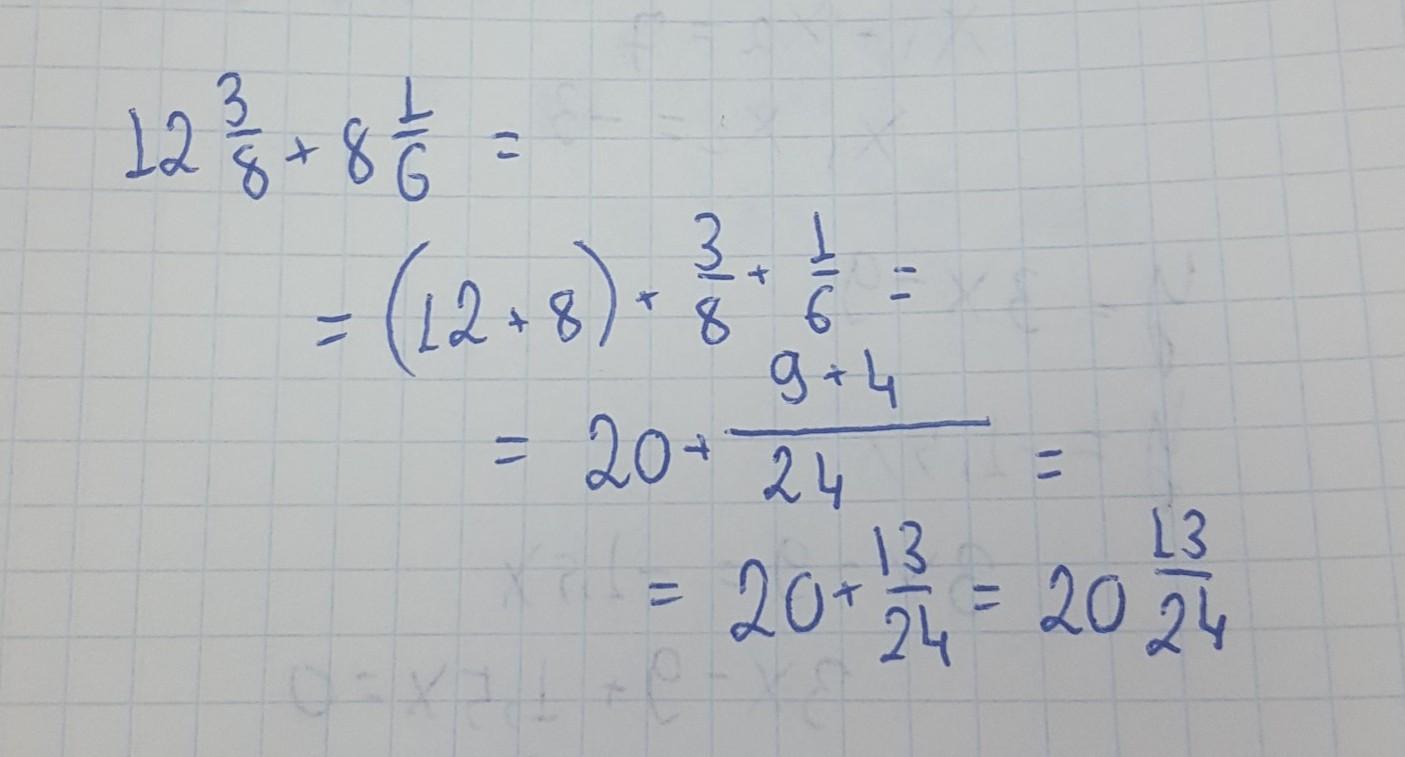 12 3/8 + 8 1/6 =
= (12 + 8) + 3/8 + 1/6 =
= 20 + (9 + 4)/24 =
= 20 + 13/24 = 20 13/24